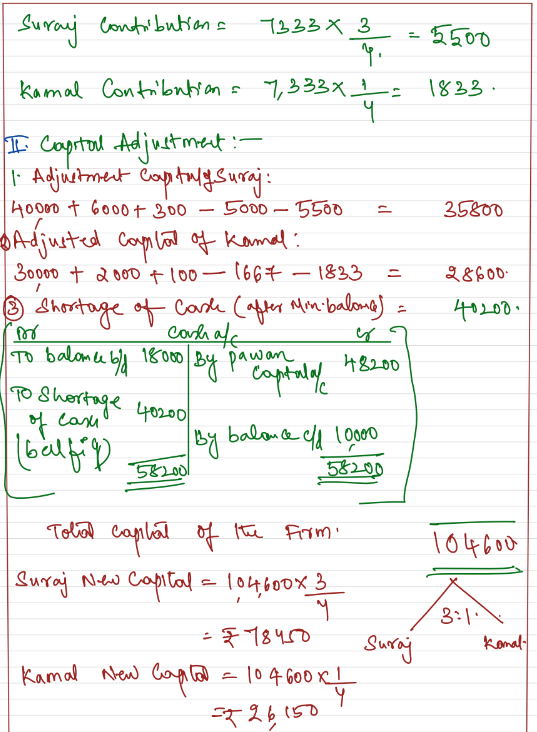 Suraj Contribution = 7333 × 3/4 = ₹5500
Kamal Contribution = 7,333 × 1/4 = 1833.
II. Capital Adjustment :—
1. Adjustment Capital of Suraj :
40000 + 6000 + 300 — 5000 — 5500 = 35800
② Adjusted Capital of Kamal :
30000 + 2000 + 100 — 1667 — 1833 = 28600.
③ Shortage of Cash (after Min. balance) = 40200.
Dr Cash a/c Cr
To balance b/d 18000 By Pawan Capital a/c 48200
To Shortage of Cash (bal fig) 40200
By balance c/d 10000
58200 58200
Total Capital of the Firm. 104600
Suraj New Capital = 104,600 × 3/4
3:1.
= ₹ 78450
Suraj Kamal.
Kamal New Capital = 104600 × 1/4
= ₹ 26,150